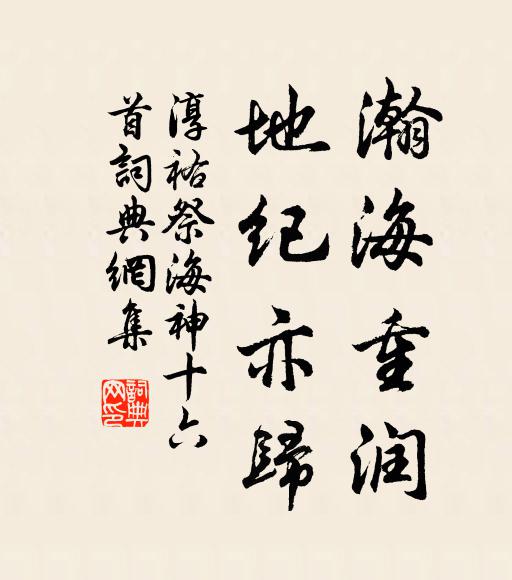 瀚海重润
地纪亦歸
淳祐祭海神十六
首詞典網集
詞典网印